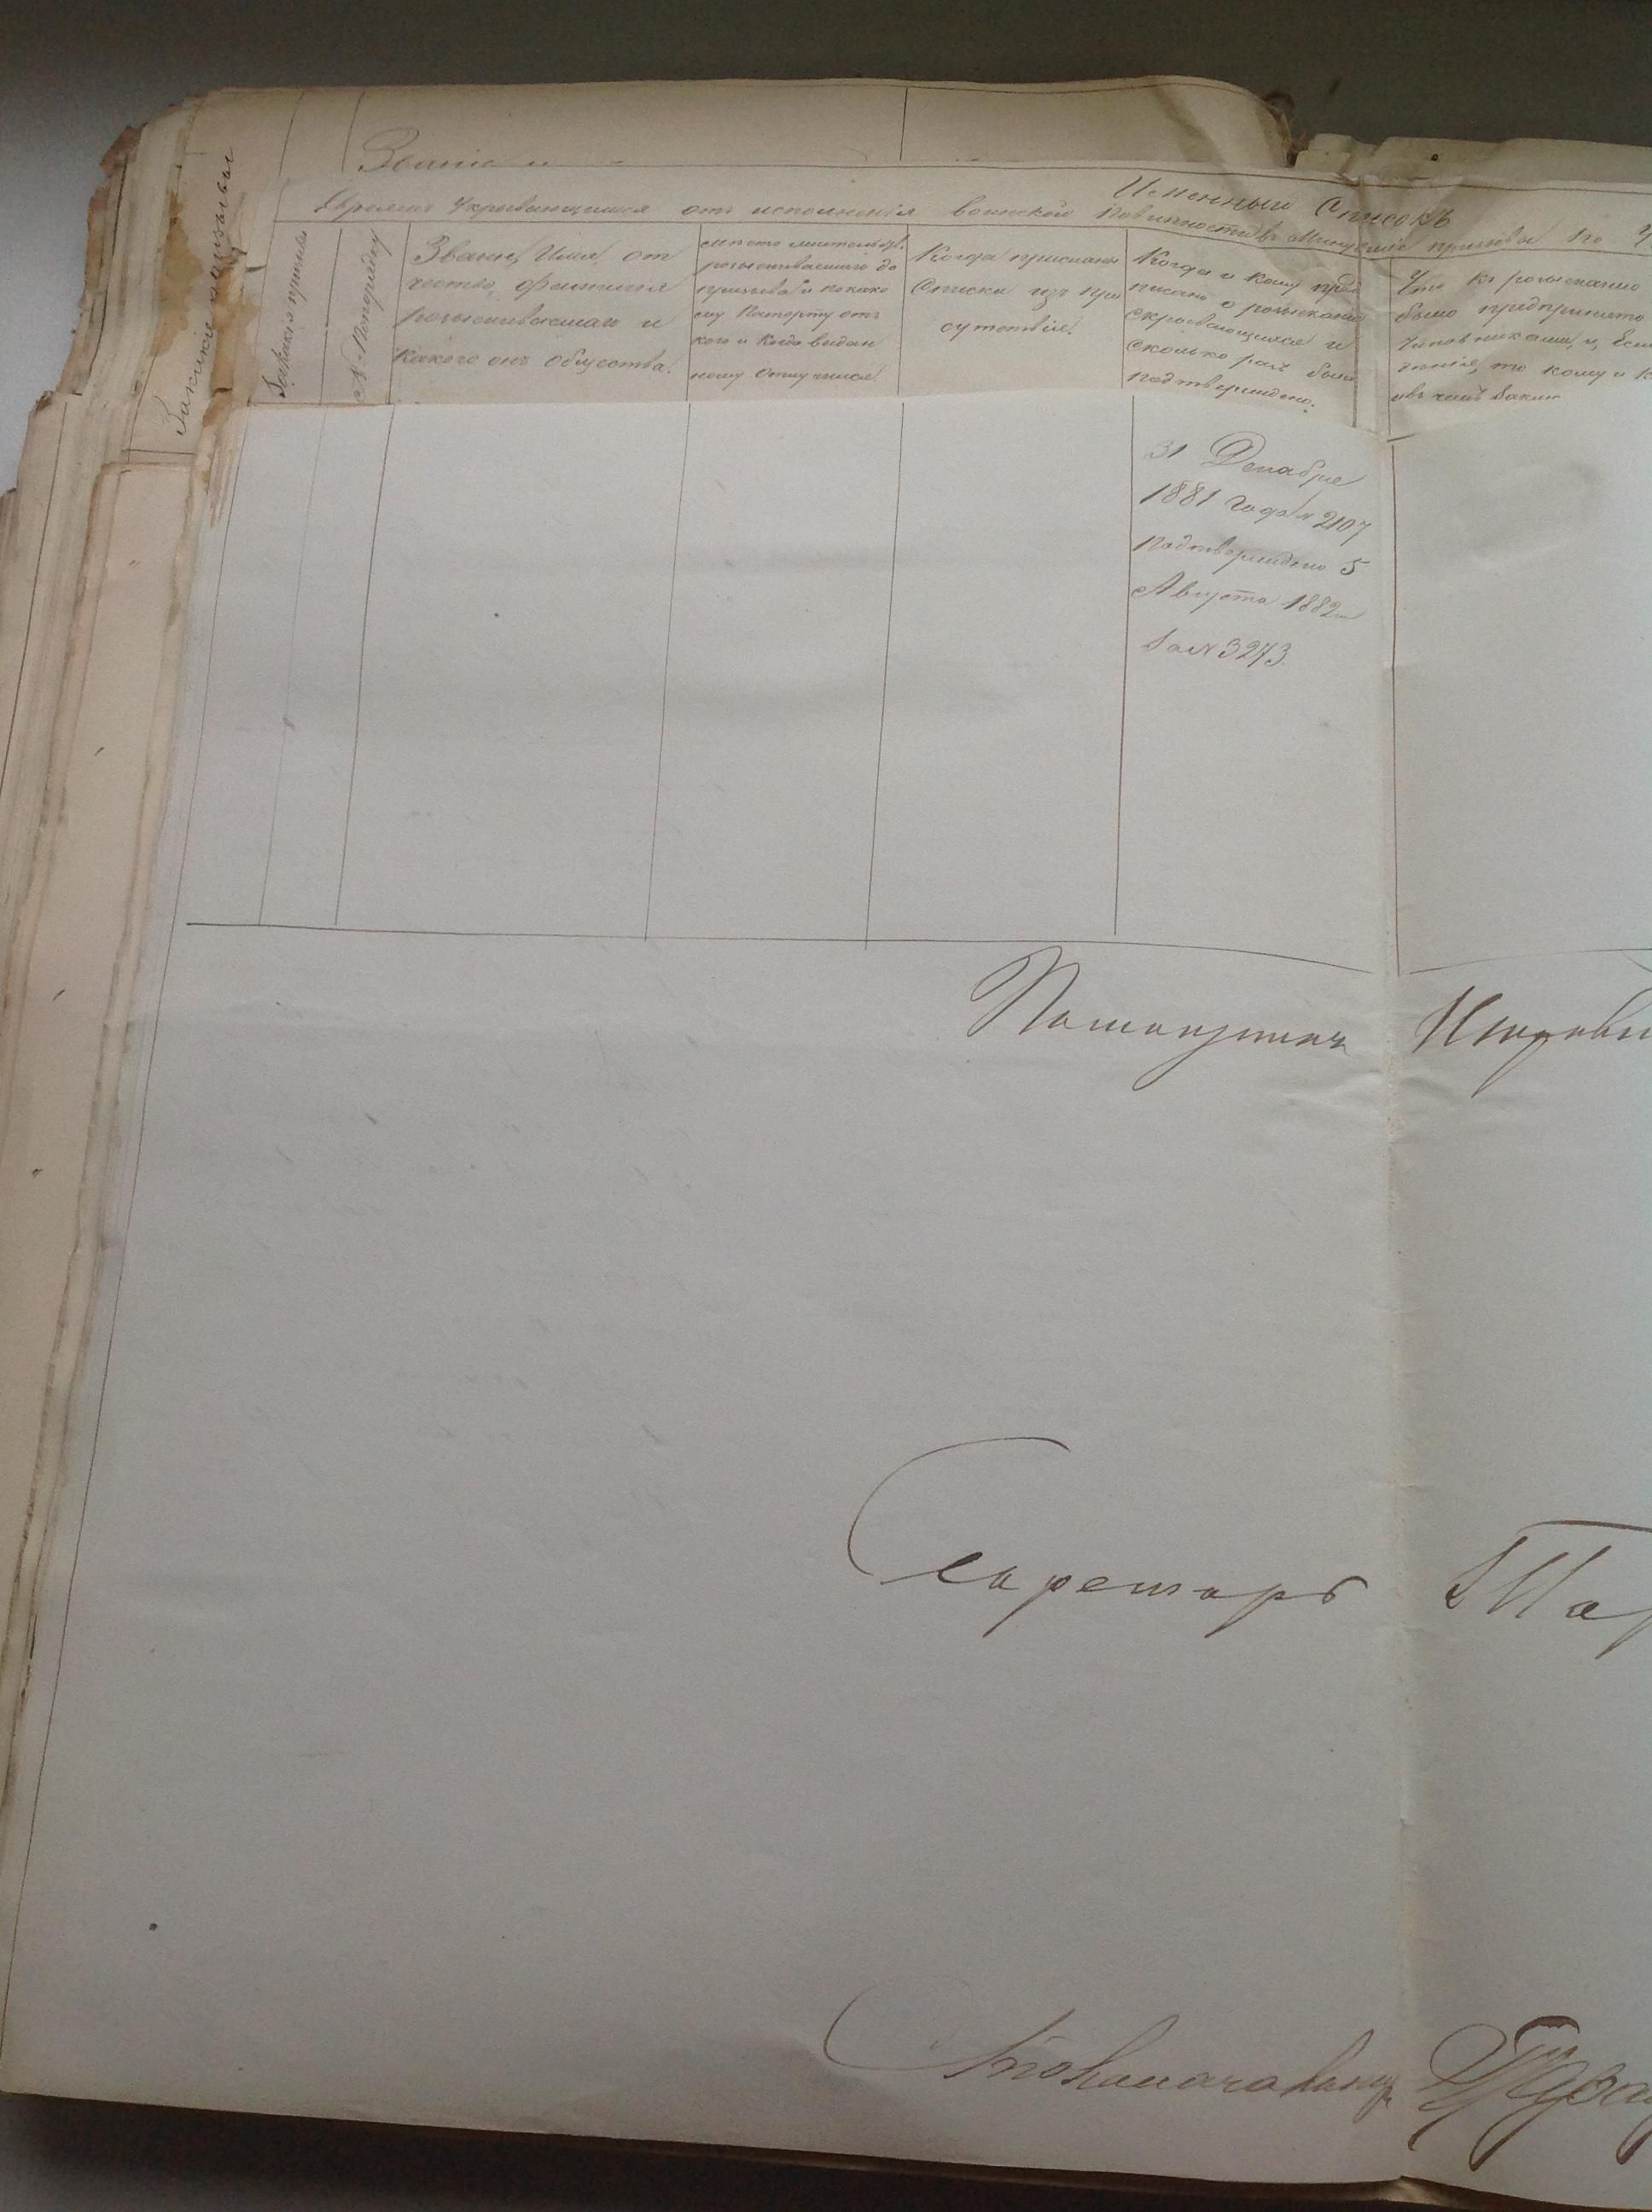 Званіе и
Какіе призывы
Именный Списокъ
Евреямъ Укрывающимся отъ исполненія воинской повинности въ призывы по
За какіе призывы
№ Попорядку
Званіе, Имя, от
чество, фамилія
розыскиваемаго и
какого онъ общества.
место жительства
розыскиваемаго до
призыва и по како
му Паспорту отъ
кого и Когда выдан
ному отлучился
Когда присланы
Списки изъ при
сутствія.
Когда и кому пред
писано о розысканіи
скрывающихся и
сколько разъ было
подтверждено.
Что къ розысканію
было предпринято
Чиновниками, и, Если
то кому и К
31 Декабря
1881 года № 2107
Подтверждено 5
Августа 1882
За № 3273
Помощникъ
Секретарь
Столоначальникъ